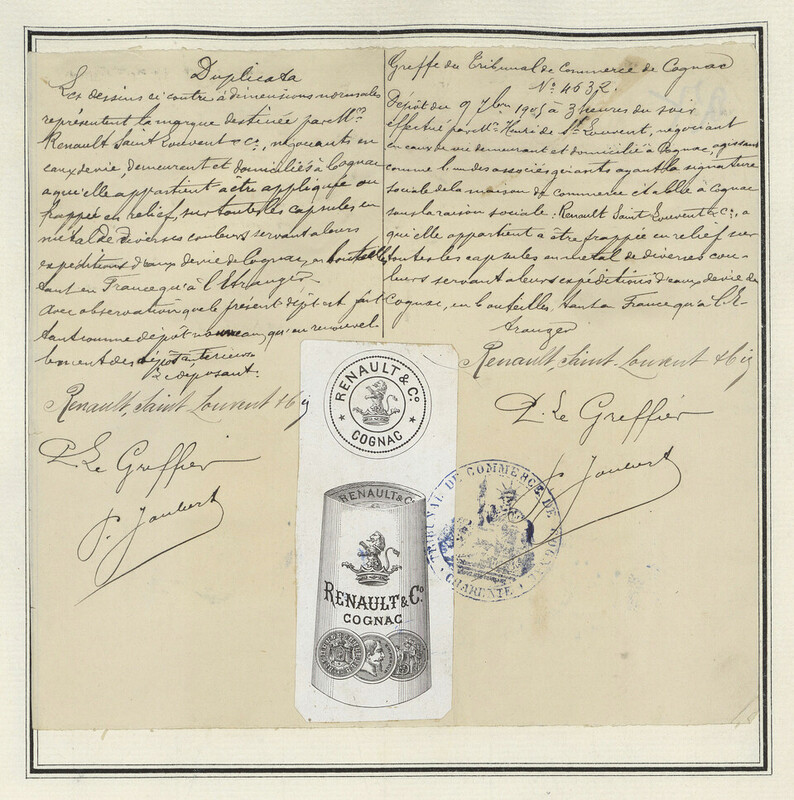 Duplicata
Les dessins ci contre à dimensions normales
représentent la marque destinée par MM.
Renault Saint Louvent & Co, négociants en
eaux de vie, demeurant et domiciliés à Cognac
a qu'elle appartient a être appliquée ou
frappée en relief, sur toutes les capsules en
métal de diverses couleurs servant à leurs
expéditions d'eaux de vie de Cognac, en bouteilles,
tant en France qu'à l'Etranger
Avec observation que le présent dépôt est fait
tant comme dépôt nouveau, qu'en renouvel-
lement des dépôts antérieurs
Le déposant.
Renault, Saint Louvent & Cie
P. Le Greffier
P. Joubert
Greffe du Tribunal de Commerce de Cognac
No. 4632.
Dépôt du 9 7bre 1905 à 3 heures du soir
effectué par Mr. Henri de St. Louvent, négociant
en eaux de vie demeurant et domicilié à Cognac, agissant
comme l'un des associés gérants ayant la signature
sociale de la maison de commerce établie à Cognac
sous la raison sociale: Renault Saint Louvent & Co., a
qu'elle appartient a être frappée en relief sur
toutes les capsules en métal de diverses cou-
leurs servant a leurs expéditions d'eaux de vie de
Cognac, en bouteilles, tant en France qu'à l'E-
tranger
Renault, Saint Louvent & Cie
P. Le Greffier
P. Joubert
RENAULT & Co
COGNAC
RENAULT & Co
RENAULT & Co
COGNAC
TRIBUNAL DE COMMERCE DE COGNAC
CHARENTE